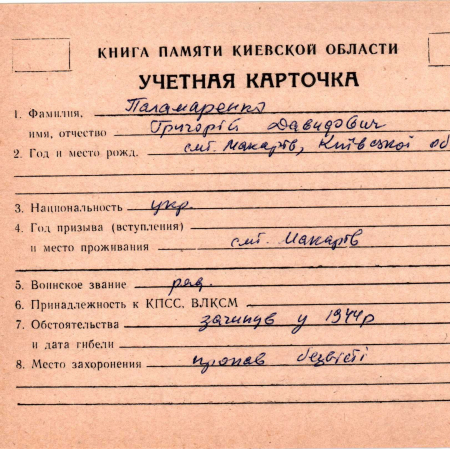 КНИГА ПАМЯТИ КИЕВСКОЙ ОБЛАСТИ
УЧЕТНАЯ КАРТОЧКА
1. Фамилия, Паламаренко
имя, отчество Григорій Давидович
2. Год и место рожд. смт. Макарів, Київської об
3. Национальность укр.
4. Год призыва (вступления)
и место проживания смт. Макарів
5. Воинское звание ряд.
6. Принадлежность к КПСС, ВЛКСМ
7. Обстоятельства загинув у 1944р
и дата гибели
8. Место захоронения пропав безвісті